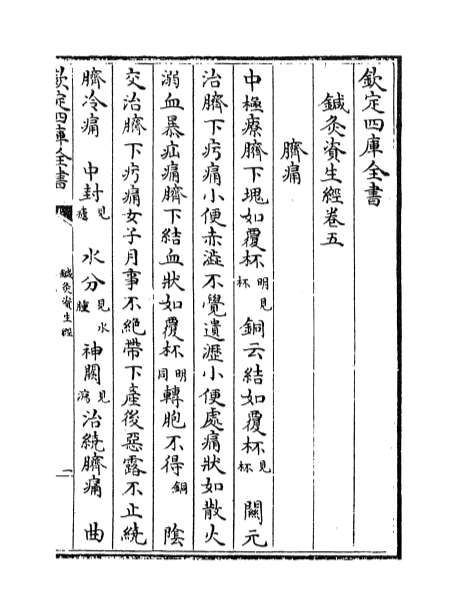 欽定四庫全書
鍼灸資生經卷五
臍痛
中極療臍下塊如覆杯明見杯 銅云結如覆杯見杯 關元
治臍下疞痛小便赤澁不覺遺瀝小便處痛狀如散火
溺血暴疝痛臍下結血狀如覆杯明同轉胞不得銅 陰
交治臍下疞痛女子月事不絶帶下產後惡露不止繞
臍冷痛 中封見瘧 水分見水腫 神闕見瀉治繞臍痛 曲
欽定四庫全書
鍼灸資生經
一